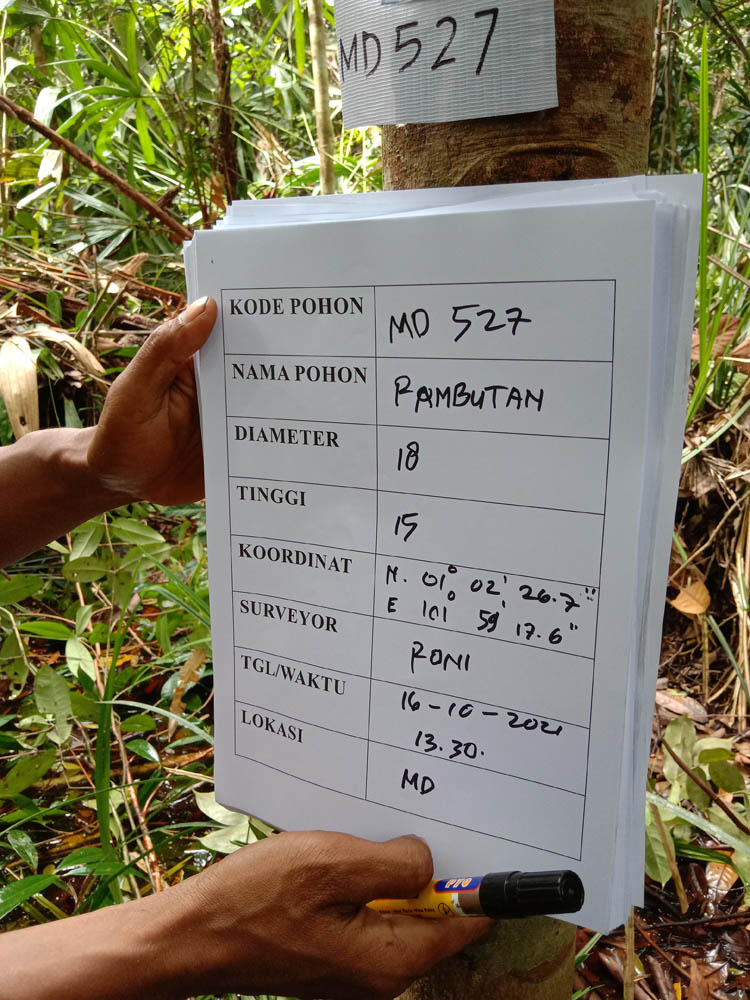 MD 527
KODE POHON MD 527
NAMA POHON RAMBUTAN
DIAMETER 18
TINGGI 15
KOORDINAT N. 01° 02' 26.7"
E 101° 59' 17.6"
SURVEYOR RONI
TGL/WAKTU 16-10-2021
13.30.
LOKASI MD